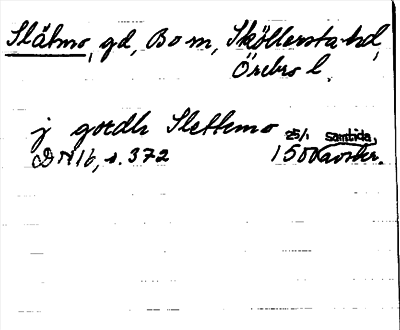 Slätmo, gd, Bo sn, Sköllersta hd,
Örebro l.
j gordh Slettemo 25/1 samtida
DN 16, s. 372 1500 avskr.